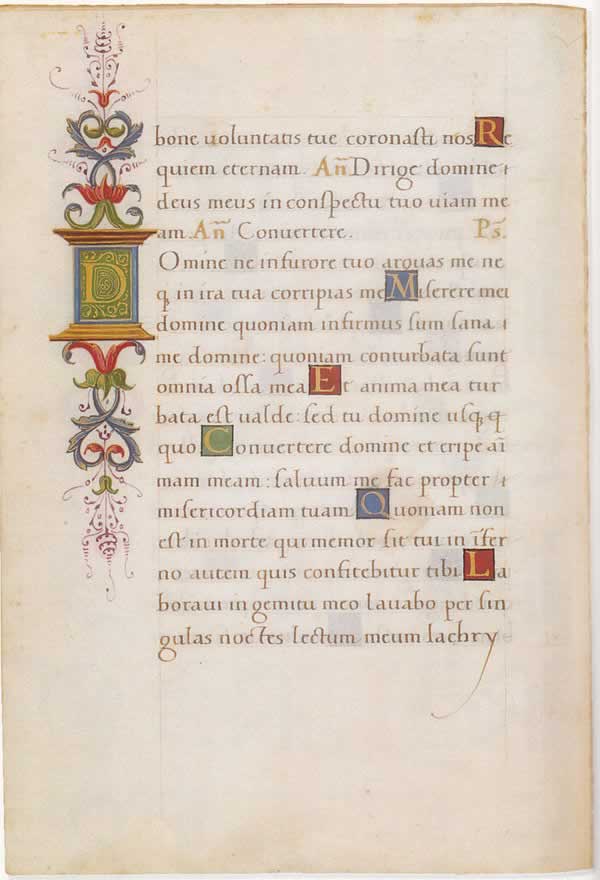 bone uoluntatis tue coronasti nos Re
quiem eternam. Añ Dirige domine
deus meus in conspectu tuo uiam me
am. Añ Conuertere. Ps̃.
Domine ne infurore tuo arguas me ne
q̨ in ira tua corripias me Miserere mei
domine quoniam infirmus sum sana
me domine: quoniam conturbata sunt
omnia ossa mea Et anima mea tur
bata est ualde: sed tu domine usq̨ q
quo Conuertere domine et eripe aĩ
mam meam: saluum me fac propter
misericordiam tuam Quoniam non
est in morte qui memor sit tui in ĩfer
no autem quis confitebitur tibi La
boraui in gemitu meo lauabo per sin
gulas noctes lectum meum lachry